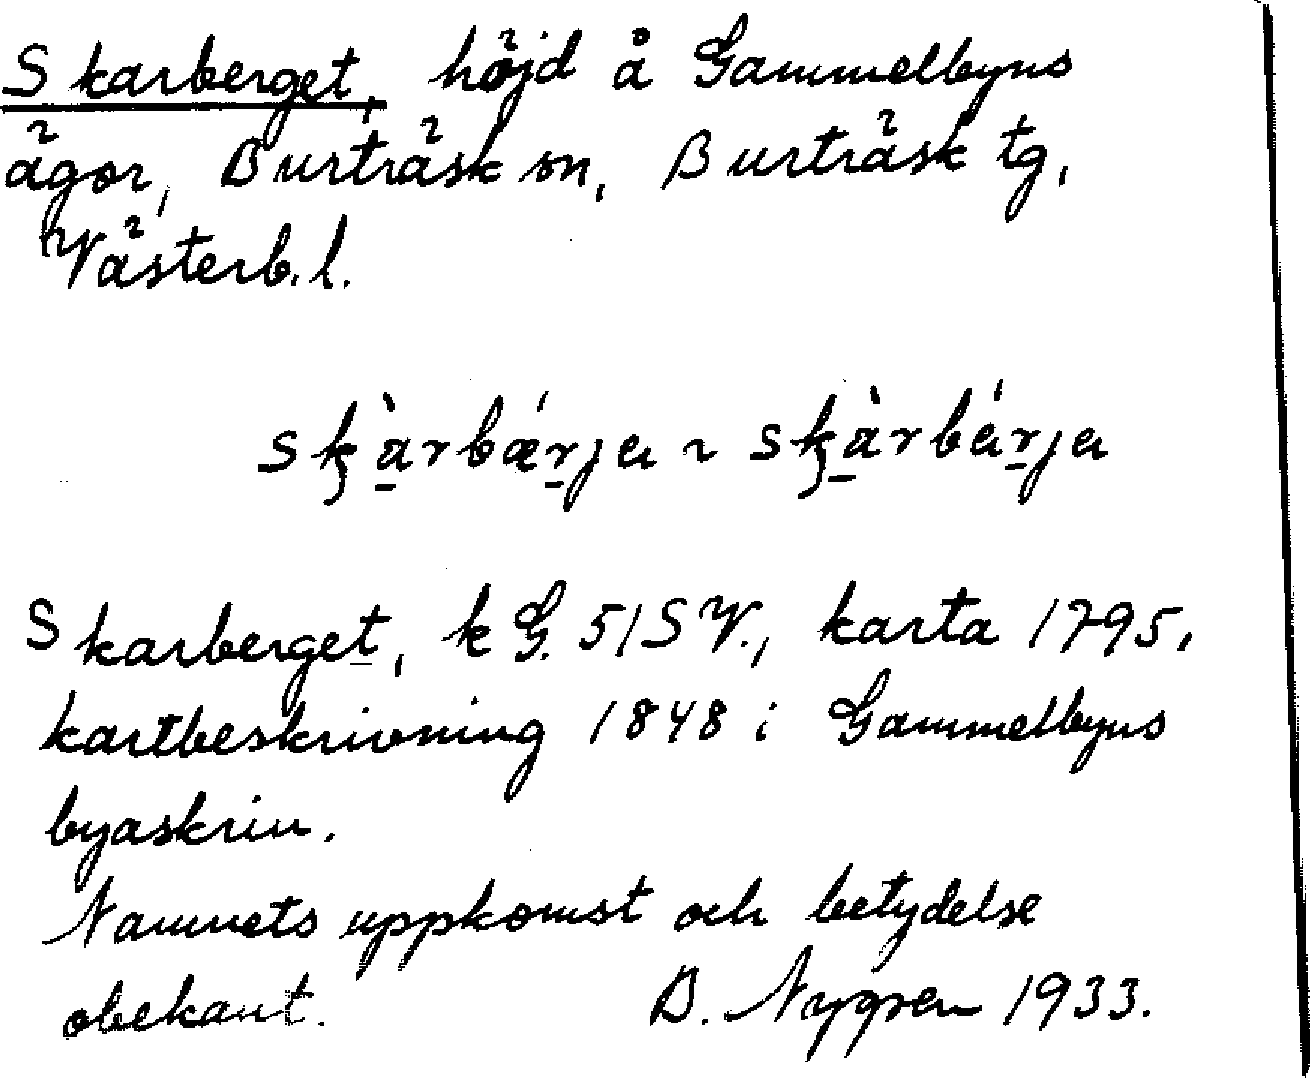 Skarberget, höjd å Gammelbyns
ägor, Burträsk sn, Burträsk tg,
Västerb.l.
Skarberget, k G. 51SV., karta 1795,
kartbeskrivning 1848 i Gammelbyns
byaskrin.
Namnets uppkomst och betydelse
obekant. B. Nygren 1933.